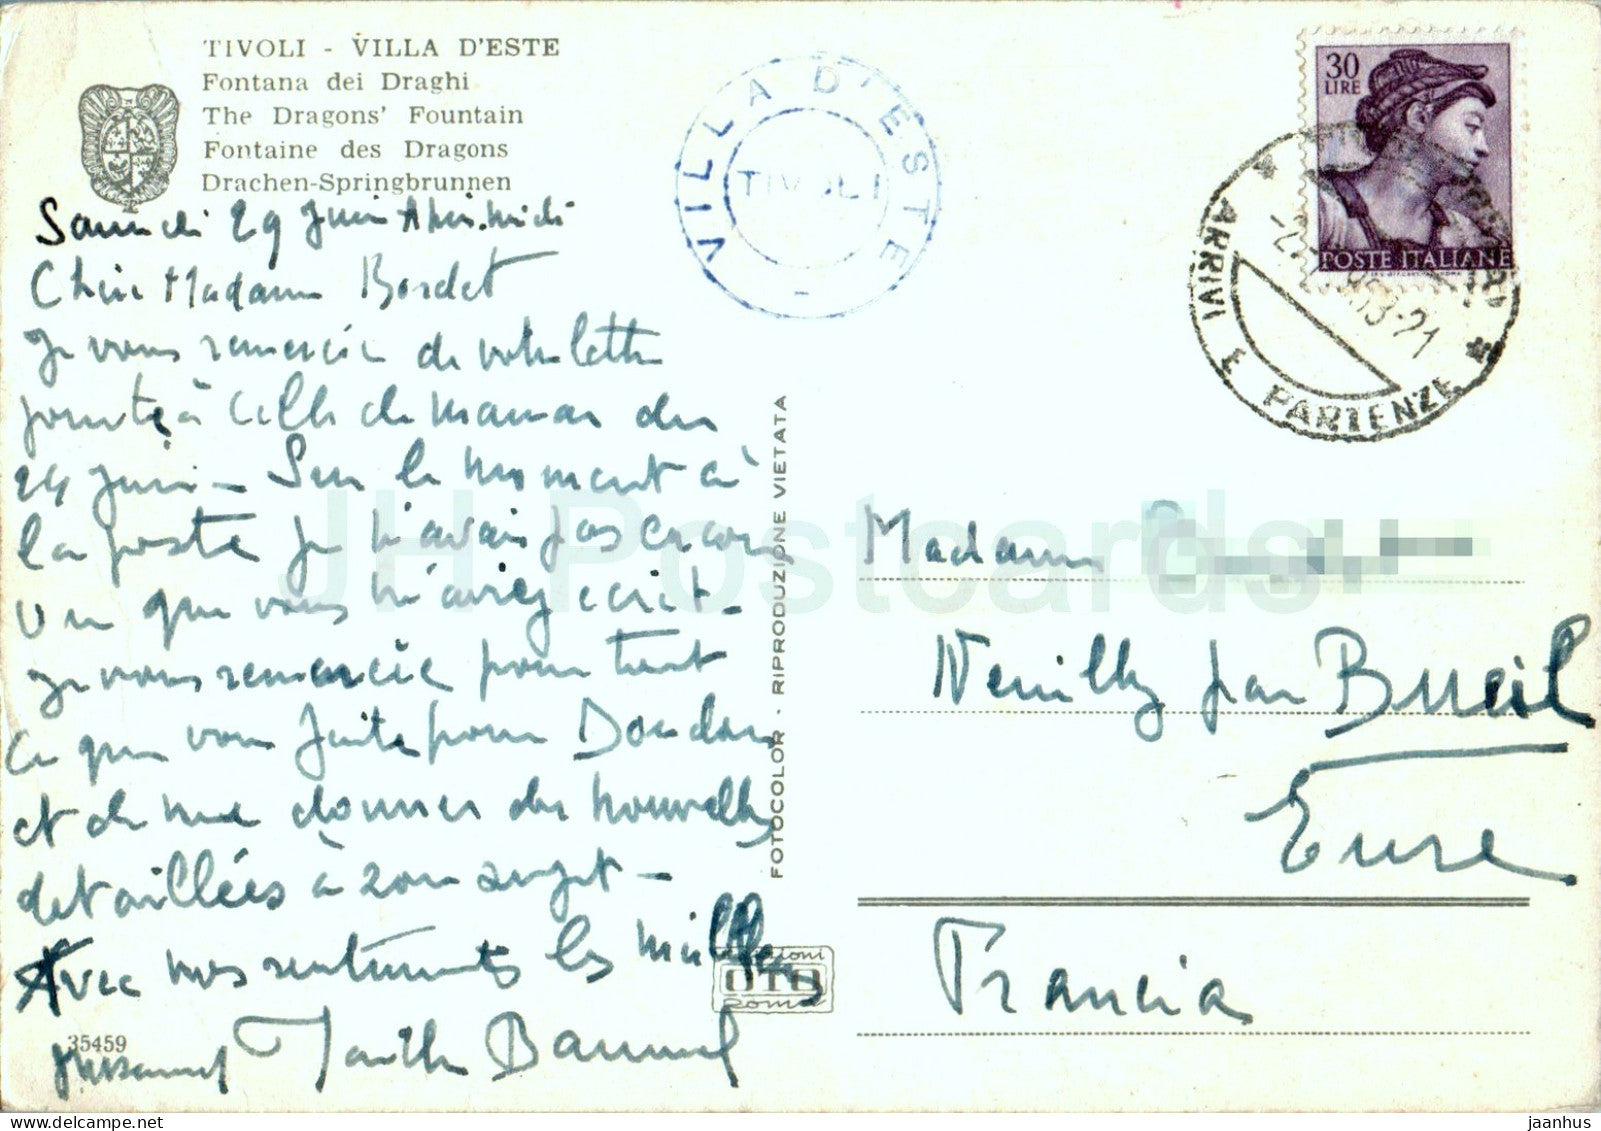 TIVOLI - VILLA D'ESTE
Fontana dei Draghi
The Dragons' Fountain
Fontaine des Dragons
Drachen-Springbrunnen
Samedi 29 Juin Après-midi
Chère Madame Bordet
Je vous remercie de votre lettre
jointe à celle de maman du
24 juin - Sur le moment à
la poste je n'avais pas encore
vu que vous m'aviez écrit -
Je vous remercie pour tout
ce que vous faites pour
et de me donner des nouvelles
détaillées à son sujet -
Avec mes sentiments les meilleurs
35459
VILLA D'ESTE
TIVOLI
30
LIRE
POSTE ITALIANE
ARRIVI E PARTENZE
FOTOCOLOR - RIPRODUZIONE VIETATA
OTO
Roma
Madame
Neuilly par Bueil
Eure
Francia
JH Postcards
www.delcampe.net
jaanhus